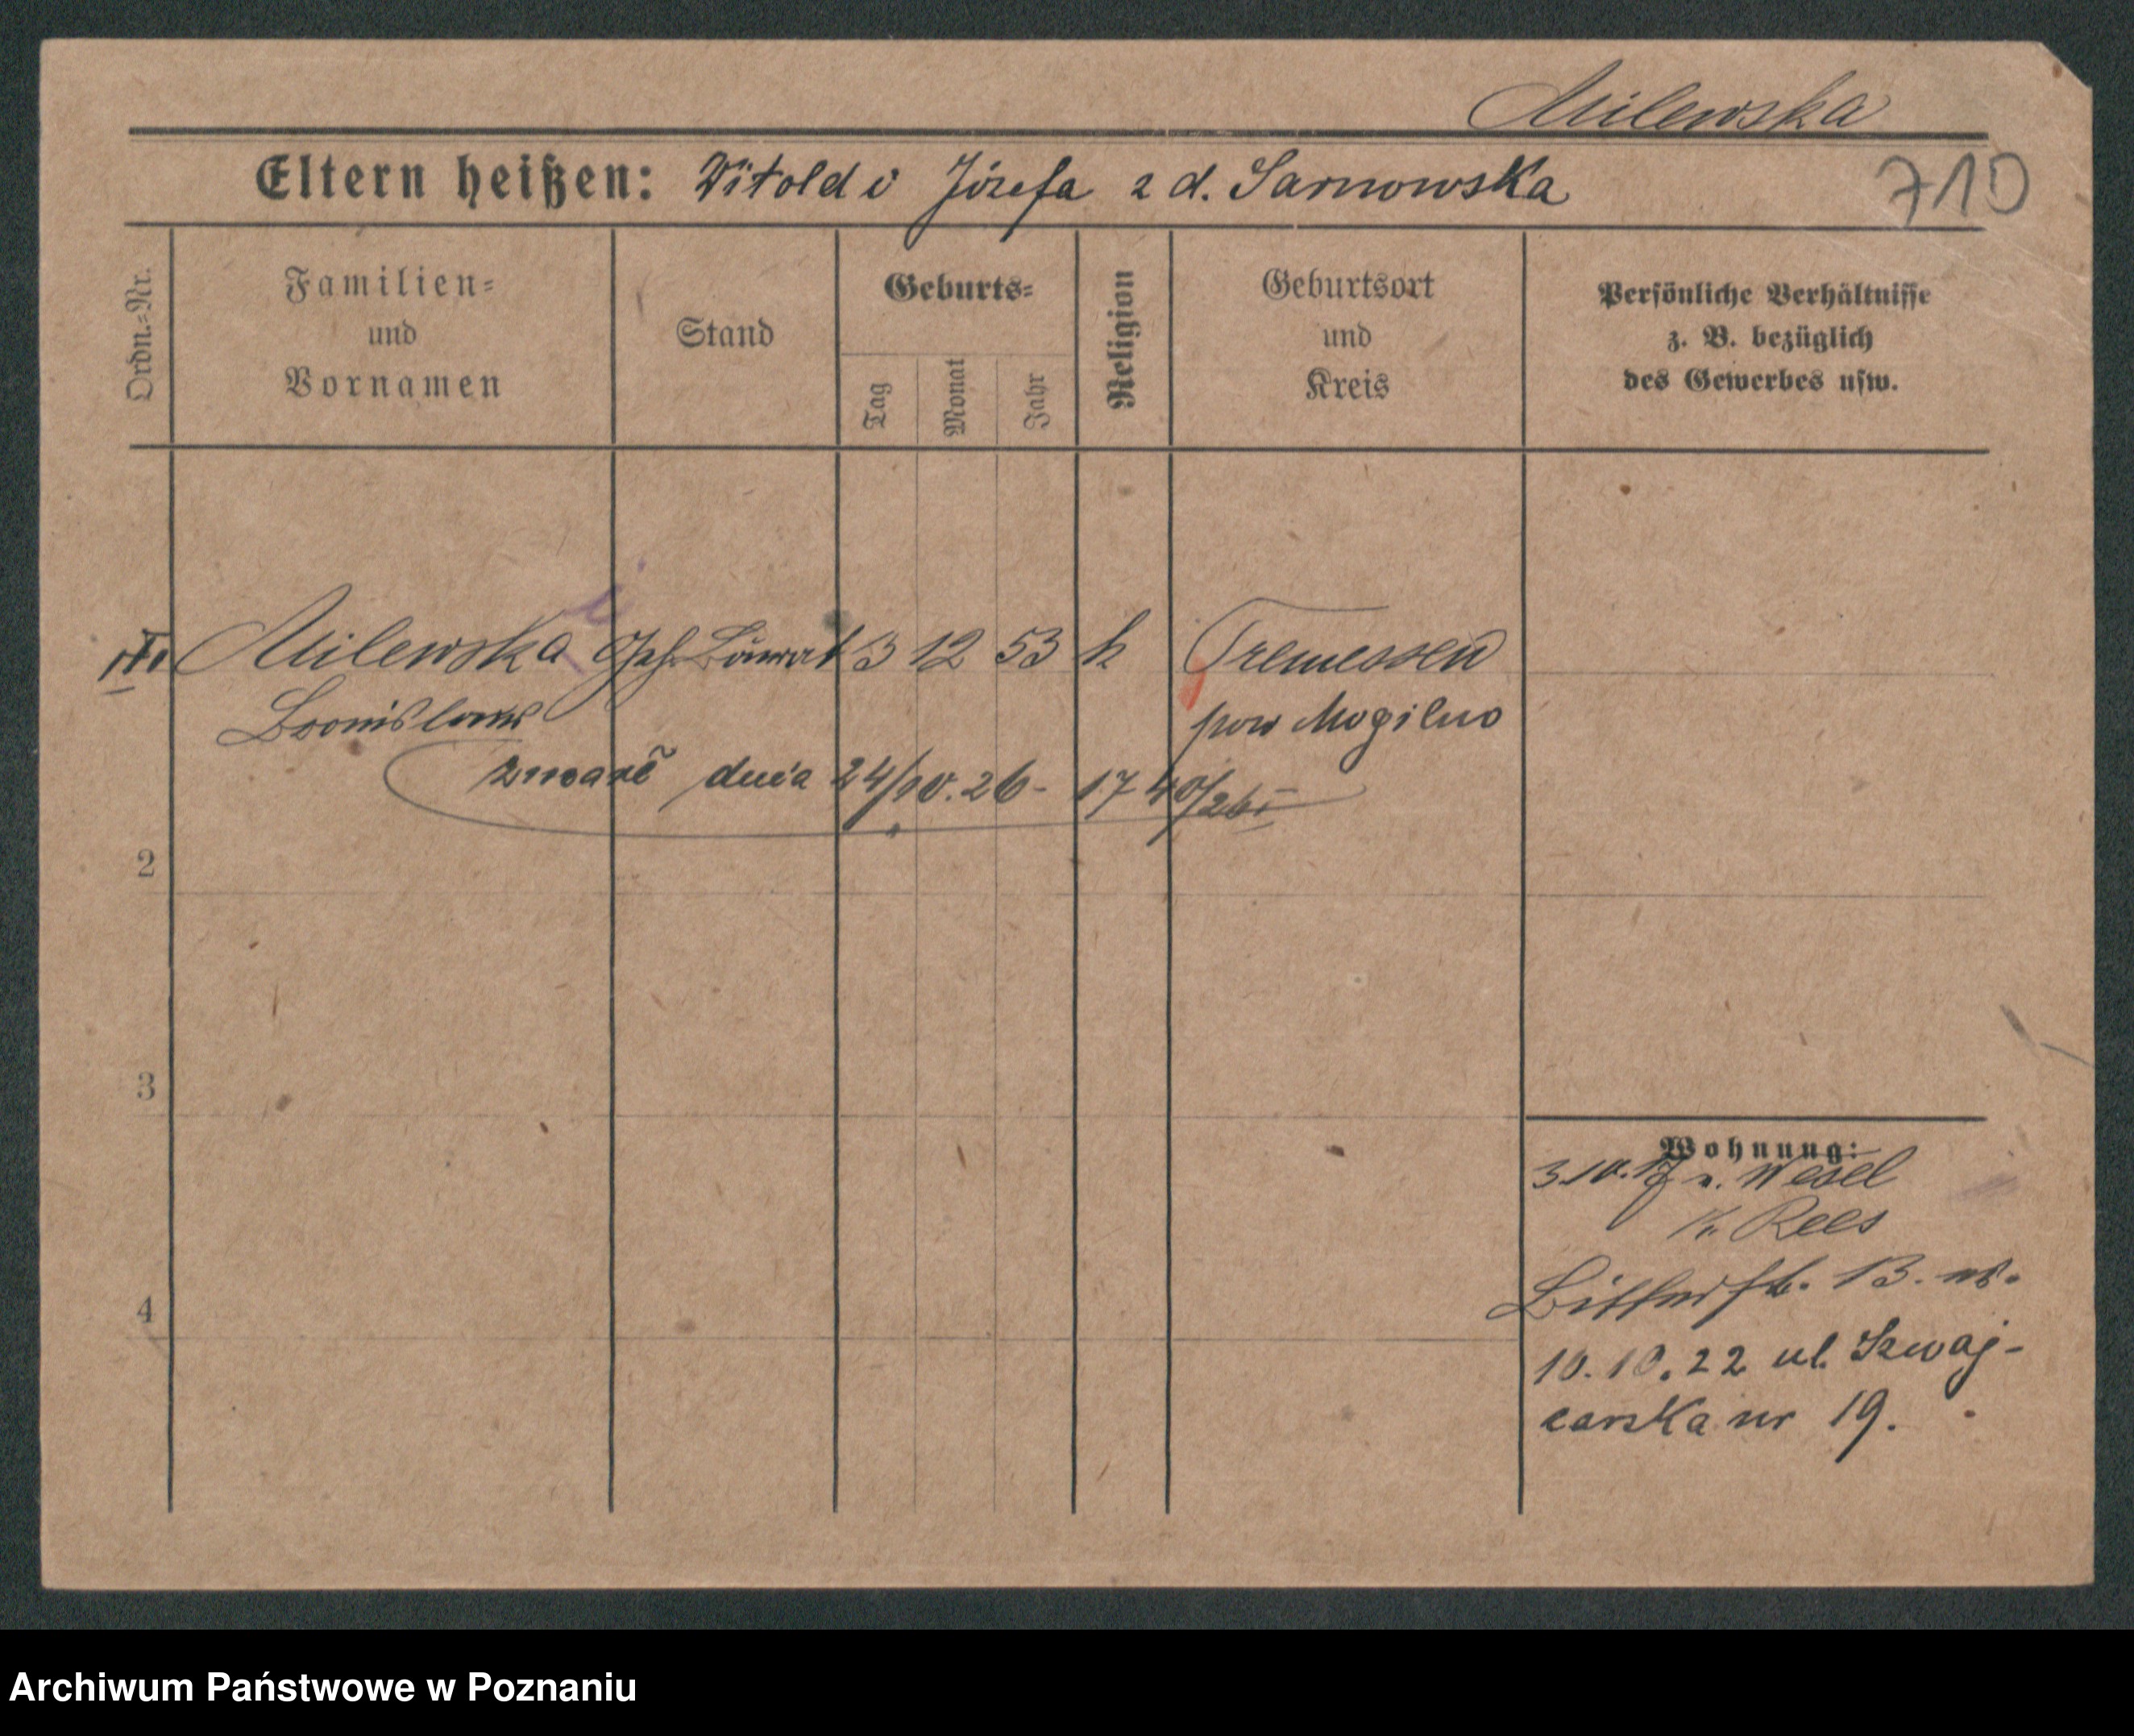 Milewska
Eltern heißen: Witold i Józefa z d. Sarnowska
710
Ordn.-Nr.
Familien-
und
Vornamen
Stand
Geburts-
Tag
Monat
Jahr
Religion
Geburtsort
und
Kreis
Persönliche Verhältnisse
z. B. bezüglich
des Gewerbes usw.
Milewska 3 12 53 k Tremessen
Bronislawa pow Mogilno
dnia 24/10.26- 1740/26
2
3
4
Wohnung:
3.10.17 v. Wesel
Kr. Rees
13.
10.10.22 ul. Szwaj-
carska nr 19.
Archiwum Państwowe w Poznaniu